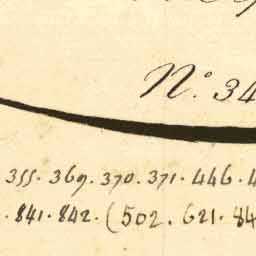 N.° 34
355. 369. 370. 371. 446. 4
. 841. 842. (502. 621. 84